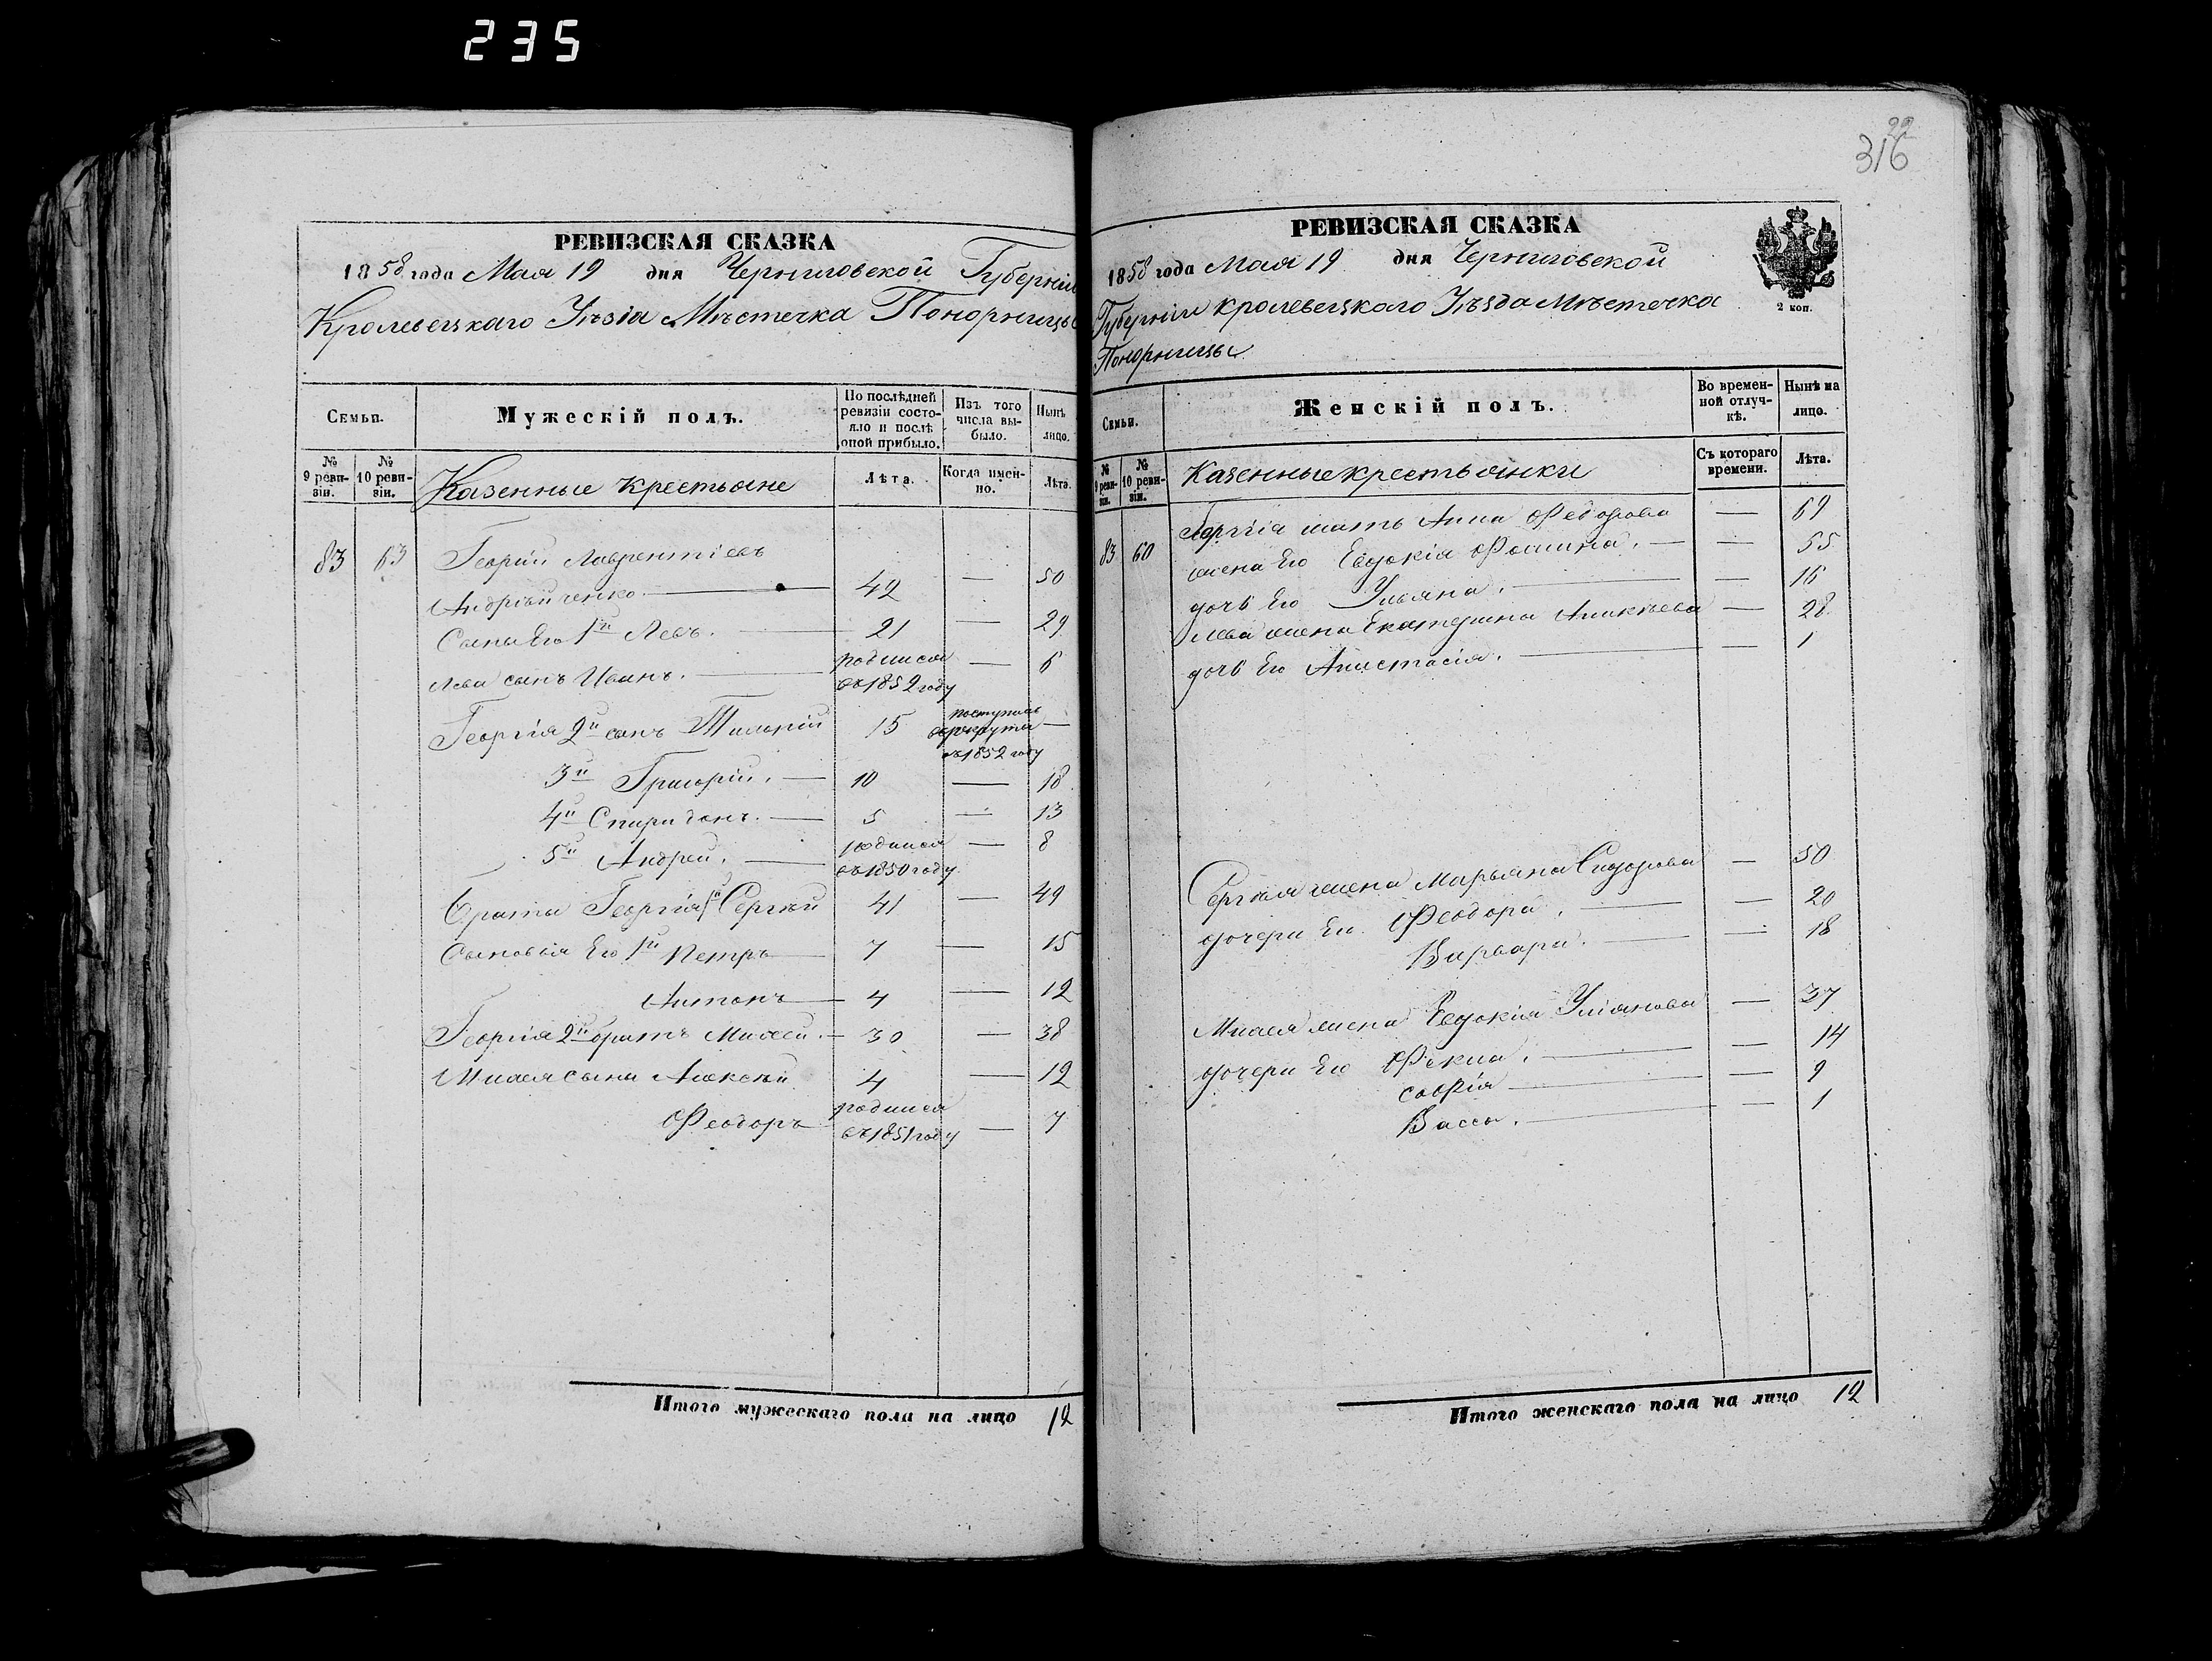 235
РЕВИЗСКАЯ СКАЗКА
1858 года Мая 19 дня Черниговской Губерніи
Кролевецкаго Уѣзда Мѣстечка Понорницы
Семьи.
Мужескій полъ.
По послѣдней ревизіи состояло и послѣ оной прибыло.
Изъ того числа выбыло.
Нынѣ лицо.
№ 9 ревизіи.
№ 10 ревизіи.
Казенные крестьяне
Лѣта.
Когда именно.
Лѣта.
83 63 Георгій Лаврентіевъ
Андрѣйченко. — 42 — 50
Сыны Его 1й Левъ. — 21 — 29
Льва сынъ Иванъ. — родился въ 1852 году — 6
Георгія 2й сынъ 15 поступилъ въ рекруты въ 1852 году —
3й Григорій. — 10 — 18
4й Спиридонъ. — 5 — 13
5й Андрей. — родился въ 1850 году — 8
Браты Георгія 1й Сергѣй 41 — 49
Сыновья Его 1й Петръ — 7 — 15
Антонъ — 4 — 12
Георгія 2й братъ — 30 — 38
сыны Алексѣй 4 — 12
Феодоръ родился въ 1851 году — 7
Итого мужескаго пола на лицо 12
22
316
РЕВИЗСКАЯ СКАЗКА
1858 года Мая 19 дня Черниговской
Губерніи Кролевецкаго Уѣзда Мѣстечка
Понорницы
2 коп.
Семьи.
Женскій полъ.
Во временной отлучкѣ.
Нынѣ на лицо.
№ 9 ревизіи.
№ 10 ревизіи.
Казенные крестьянки
Съ котораго времени.
Лѣта.
83 60 Георгія мать Анна Федорова — 69
жена Его Евдокія Фомина. — — 55
дочь Его Ульяна. — — 16
Льва жена Екатерина — 28
дочь Его Анастасія. — — 1
Сергѣя жена Марьяна Сидорова — 50
дочери Его Феодора. — — 20
Варвара. — — 18
жена Евдокія — 37
дочери Его Фекла. — — 14
Софія — — 9
Васса. — — 1
Итого женскаго пола на лицо 12